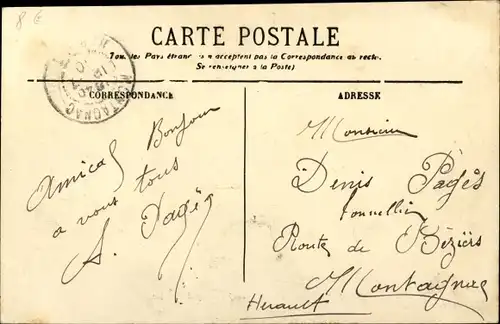 8 €
CARTE POSTALE
Tous les Pays étrangers n'acceptent pas la Correspondance au recto.
Se renseigner à la Poste)
MONTAGNAC
CORRESPONDANCE
ADRESSE
Amical Bonjour
a vous tous
A. Pagès
Monsieur
Denis Pagès
tonnellier
Route de Béziérs
Montagnac
Herault